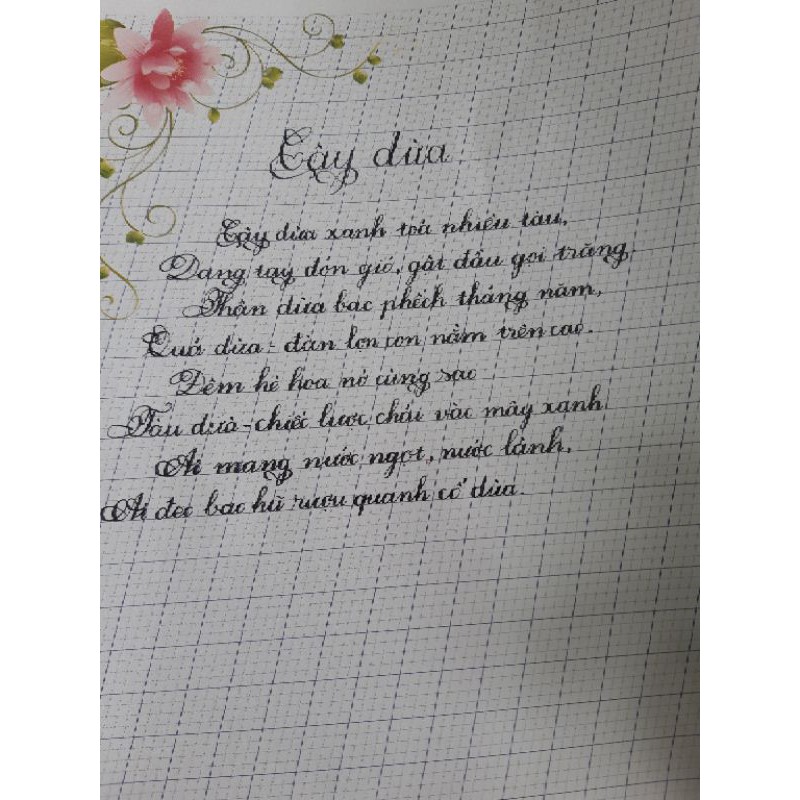 Cây dừa
Cây dừa xanh toả nhiều tàu,
Dang tay đón gió, gật đầu gọi trăng.
Thân dừa bạc phếch tháng năm,
Quả dừa - đàn lợn con nằm trên cao.
Đêm hè hoa nở cùng sao
Tàu dừa - chiếc lược chải vào mây xanh
Ai mang nước ngọt, nước lành,
Ai đeo bao hũ rượu quanh cổ dừa.